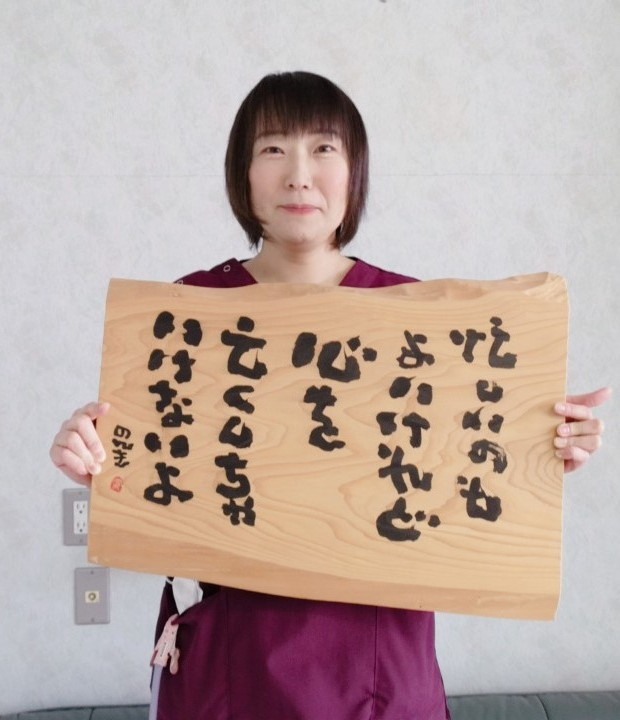 忙しいのも
よいけれど
心を
亡くしちゃ
いけないよ